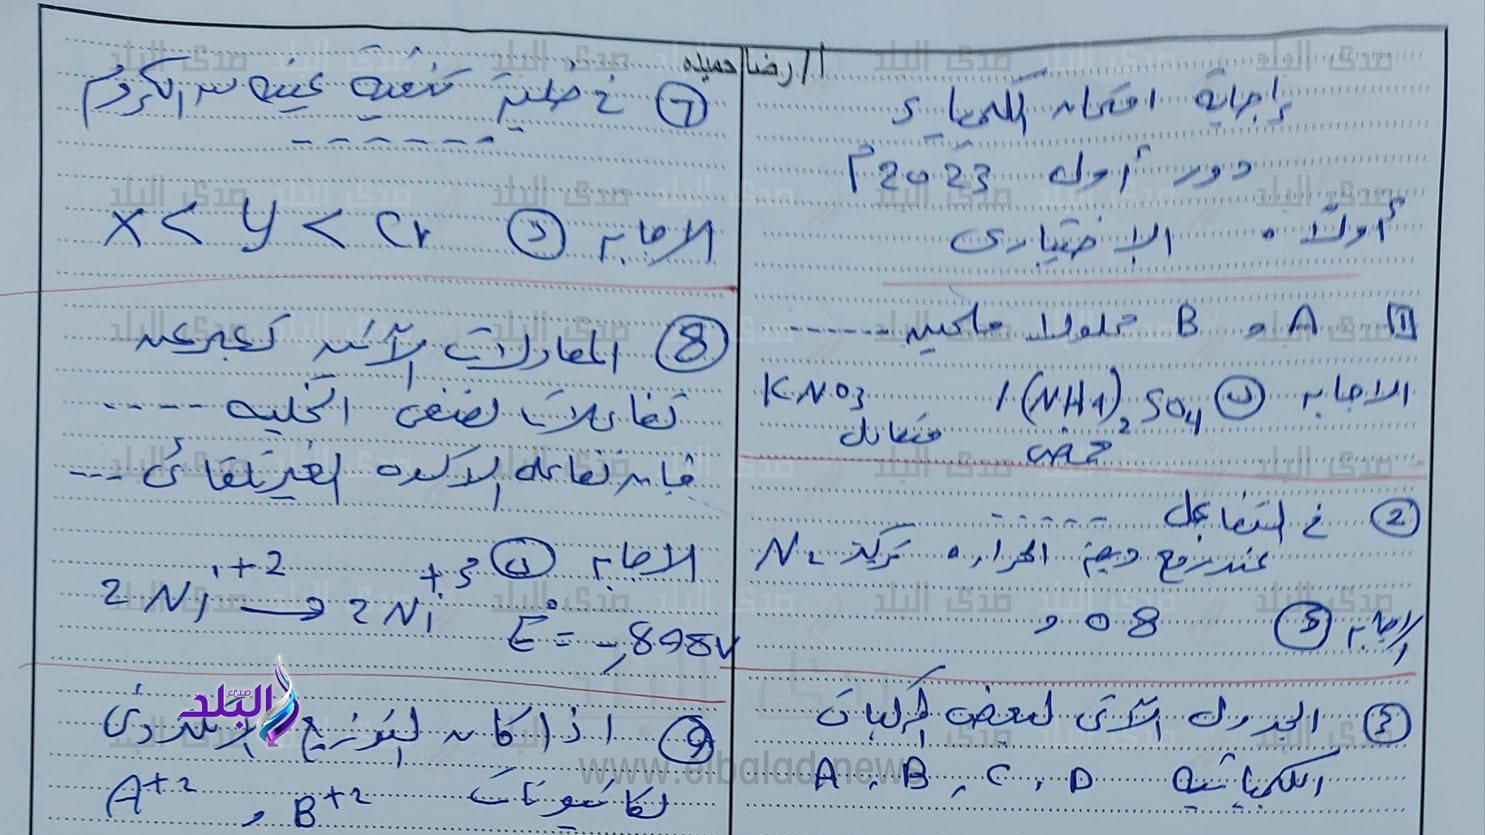 أ/ رضا حميده
إجابة امتحان الكيمياء
دور أول 2023م
أولاً . الاختيارى
1 A و B محلولا ملحين -----
الاجابه (NH4)2SO4 / KNO3
حمضى متعادل
2 فى التفاعل -----
عند رفع درجة الحراره تركيز N2
الاجابه 08 و
3 الجدول الآتى لبعض المركبات
الكيميائيه A , B , C , D
7 فى خلية عينه من الكروم
------
الاجابه د X < y < Cr
8 المعادلات الآتيه تعبر عن
تفاعلات نصفى الخليه -----
فإن تفاعل الاكسده الغير تلقائى ---
الاجابه
2 Ni+2 → 2 Ni+3
E° = -,898V
9 اذا كان التوزيع الالكترونى
لكاتيونات A+2 , B+2
صدى البلد
www.elbalad.news